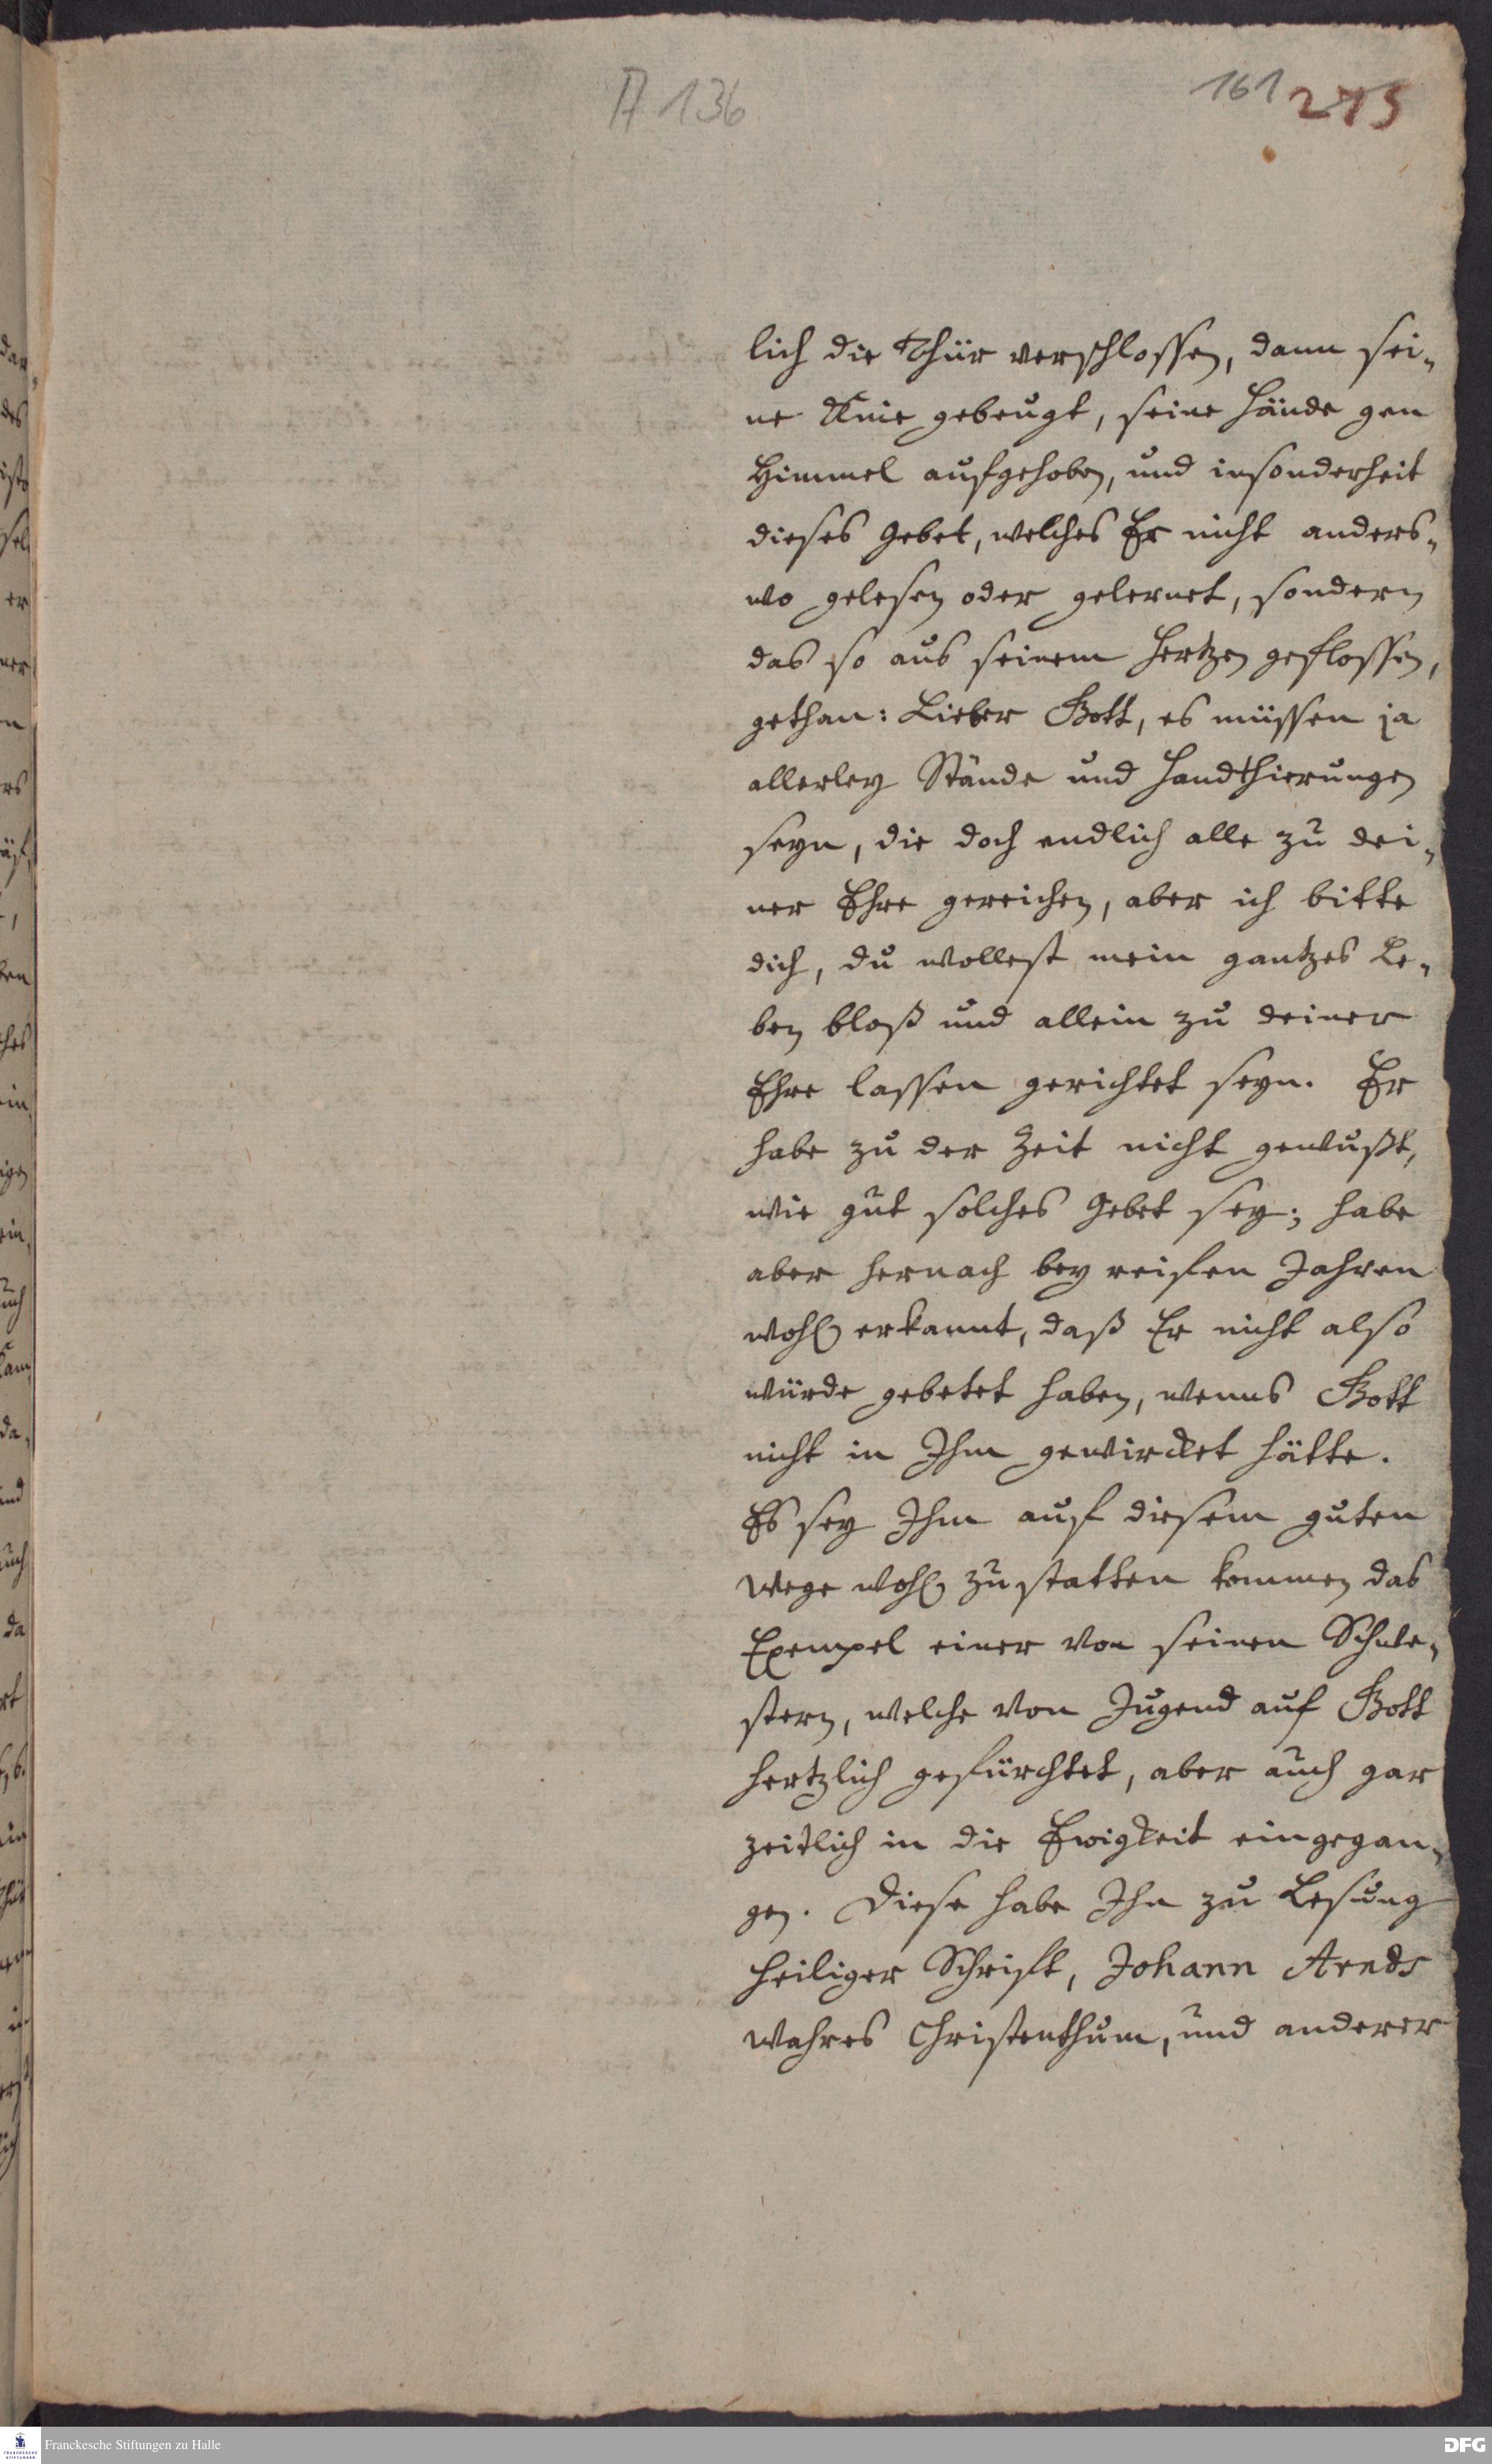 A 136
161
275
lich die Thür verschlossen, dann sei-
ne Knie gebeugt, seine Hände gen
Himmel aufgehoben, und insonderheit
dieses Gebet, welches Er nicht anders-
wo gelesen oder gelernet, sondern
das so aus seinem Hertzen geflossen,
gethan: Lieber Gott, es müssen ja
allerley Stände und Handthierungen
seyn, die doch endlich alle zu dei-
ner Ehre gereichen, aber ich bitte
dich, du wollest mein gantzes Le-
ben bloß und allein zu deiner
Ehre lassen gerichtet seyn. Er
habe zu der Zeit nicht gewußt,
wie gut solches Gebet sey; habe
aber hernach bey reifen Jahren
wohl erkannt, daß Er nicht also
würde gebetet haben, wenns Gott
nicht in Ihm gewircket hätte.
Es sey Ihm auf diesem guten
Wege wohl zu statten kommen das
Exempel einer von seinen Schwe-
stern, welche von Jugend auf Gott
hertzlich gefürchtet, aber auch gar
zeitlich in die Ewigkeit eingegan-
gen. Diese habe Ihn zu Lesung
heiliger Schrift, Johann Arnds
wahres Christenthum, und anderer
Franckesche Stiftungen zu Halle
DFG